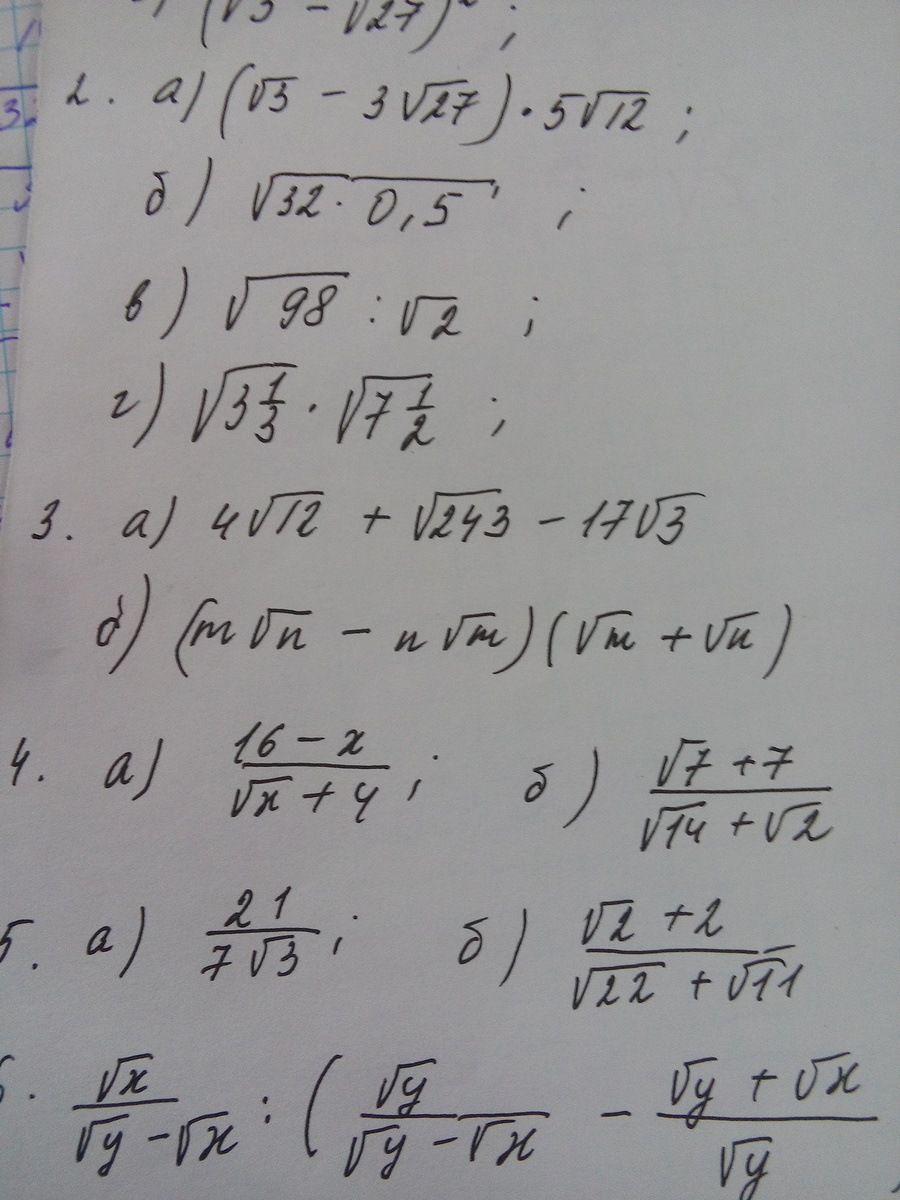 (√3 − √27)² ;
2. а) (√3 − 3√27) · 5√12 ;
б) √32 · 0,5 ;
в) √98 : √2 ;
г) √3 1/3 · √7 1/2 ;
3. а) 4√12 + √243 − 17√3
б) (m√n − n√m)(√m + √n)
4. а) (16 − x)/(√x + 4) ; б) (√7 + 7)/(√14 + √2)
5. а) 21/(7√3) ; б) (√2 + 2)/(√22 + √11)
√x/(√y − √x) : (√y/(√y − √x) − (√y + √x)/√y